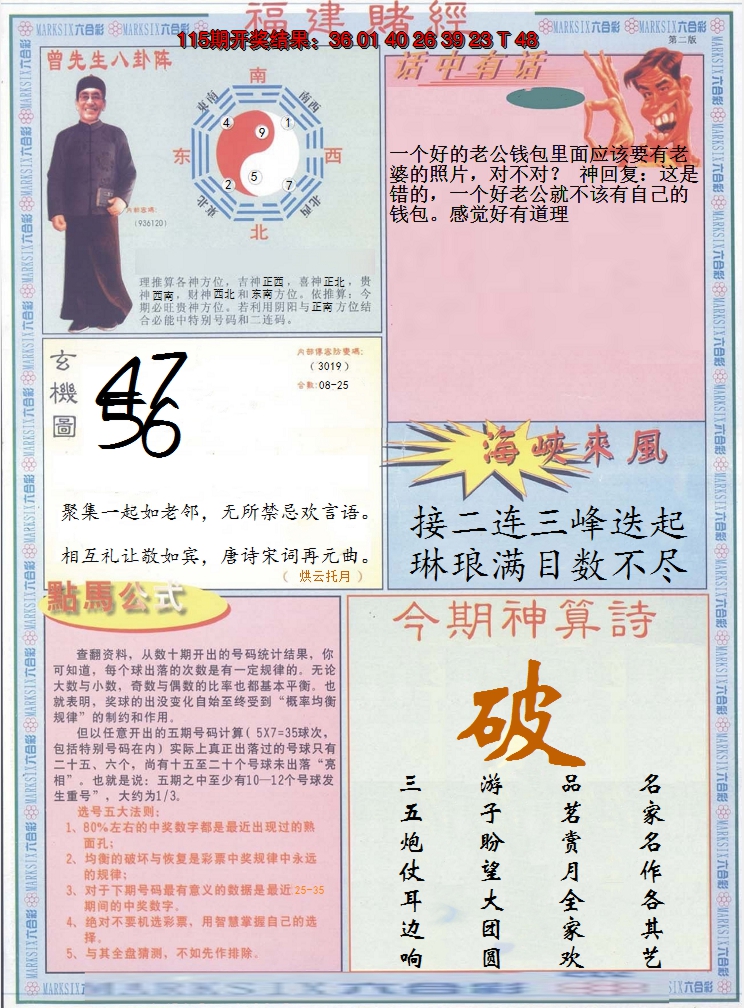 福建賭經
115期开奖结果：36 01 40 26 39 23 T 48
第二版
MARKSIX六合彩
曾先生八卦阵
南
东南
南西
4
9
1
东
西
2
5
7
東北
北西
北
内部密碼：
（936120）
理推算各神方位，吉神正西，喜神正北，贵
神西南，财神西北和东南方位。依推算：今
期必旺贵神方位。若利用阴阳与正南方位结
合必能中特别号码和二连码。
话中有话
一个好的老公钱包里面应该要有老
婆的照片，对不对？ 神回复：这是
错的，一个好老公就不该有自己的
钱包。感觉好有道理
玄機圖
47
56
（3019）
合数:08-25
聚集一起如老邻，无所禁忌欢言语。
相互礼让敬如宾，唐诗宋词再元曲。
（ 烘云托月 ）
海峡來風
接二连三峰迭起
琳琅满目数不尽
點馬公式
查翻资料，从数十期开出的号码统计结果，你
可知道，每个球出落的次数是有一定规律的。无论
大数与小数，奇数与偶数的比率也都基本平衡。也
就表明，奖球的出没变化自始至终受到“概率均衡
规律”的制约和作用。
但以任意开出的五期号码计算( 5X7=35球次，
包括特别号码在内）实际上真正出落过的号球只有
二十五、六个，尚有十五至二十个号球未出落“亮
相”。也就是说：五期之中至少有10—12个号球发
生重号”，大约为1/3。
选号五大法则：
1、80%左右的中奖数字都是最近出现过的熟
面孔；
2、均衡的破坏与恢复是彩票中奖规律中永远
的规律；
3、对于下期号码最有意义的数据是最近25-35
期间的中奖数字。
4、绝对不要机选彩票，用智慧掌握自己的选
择。
5、与其全盘猜测，不如先作排除。
今期神算詩
破
名家名作各其艺
品茗赏月全家欢
游子盼望大团圆
三五炮仗耳边响